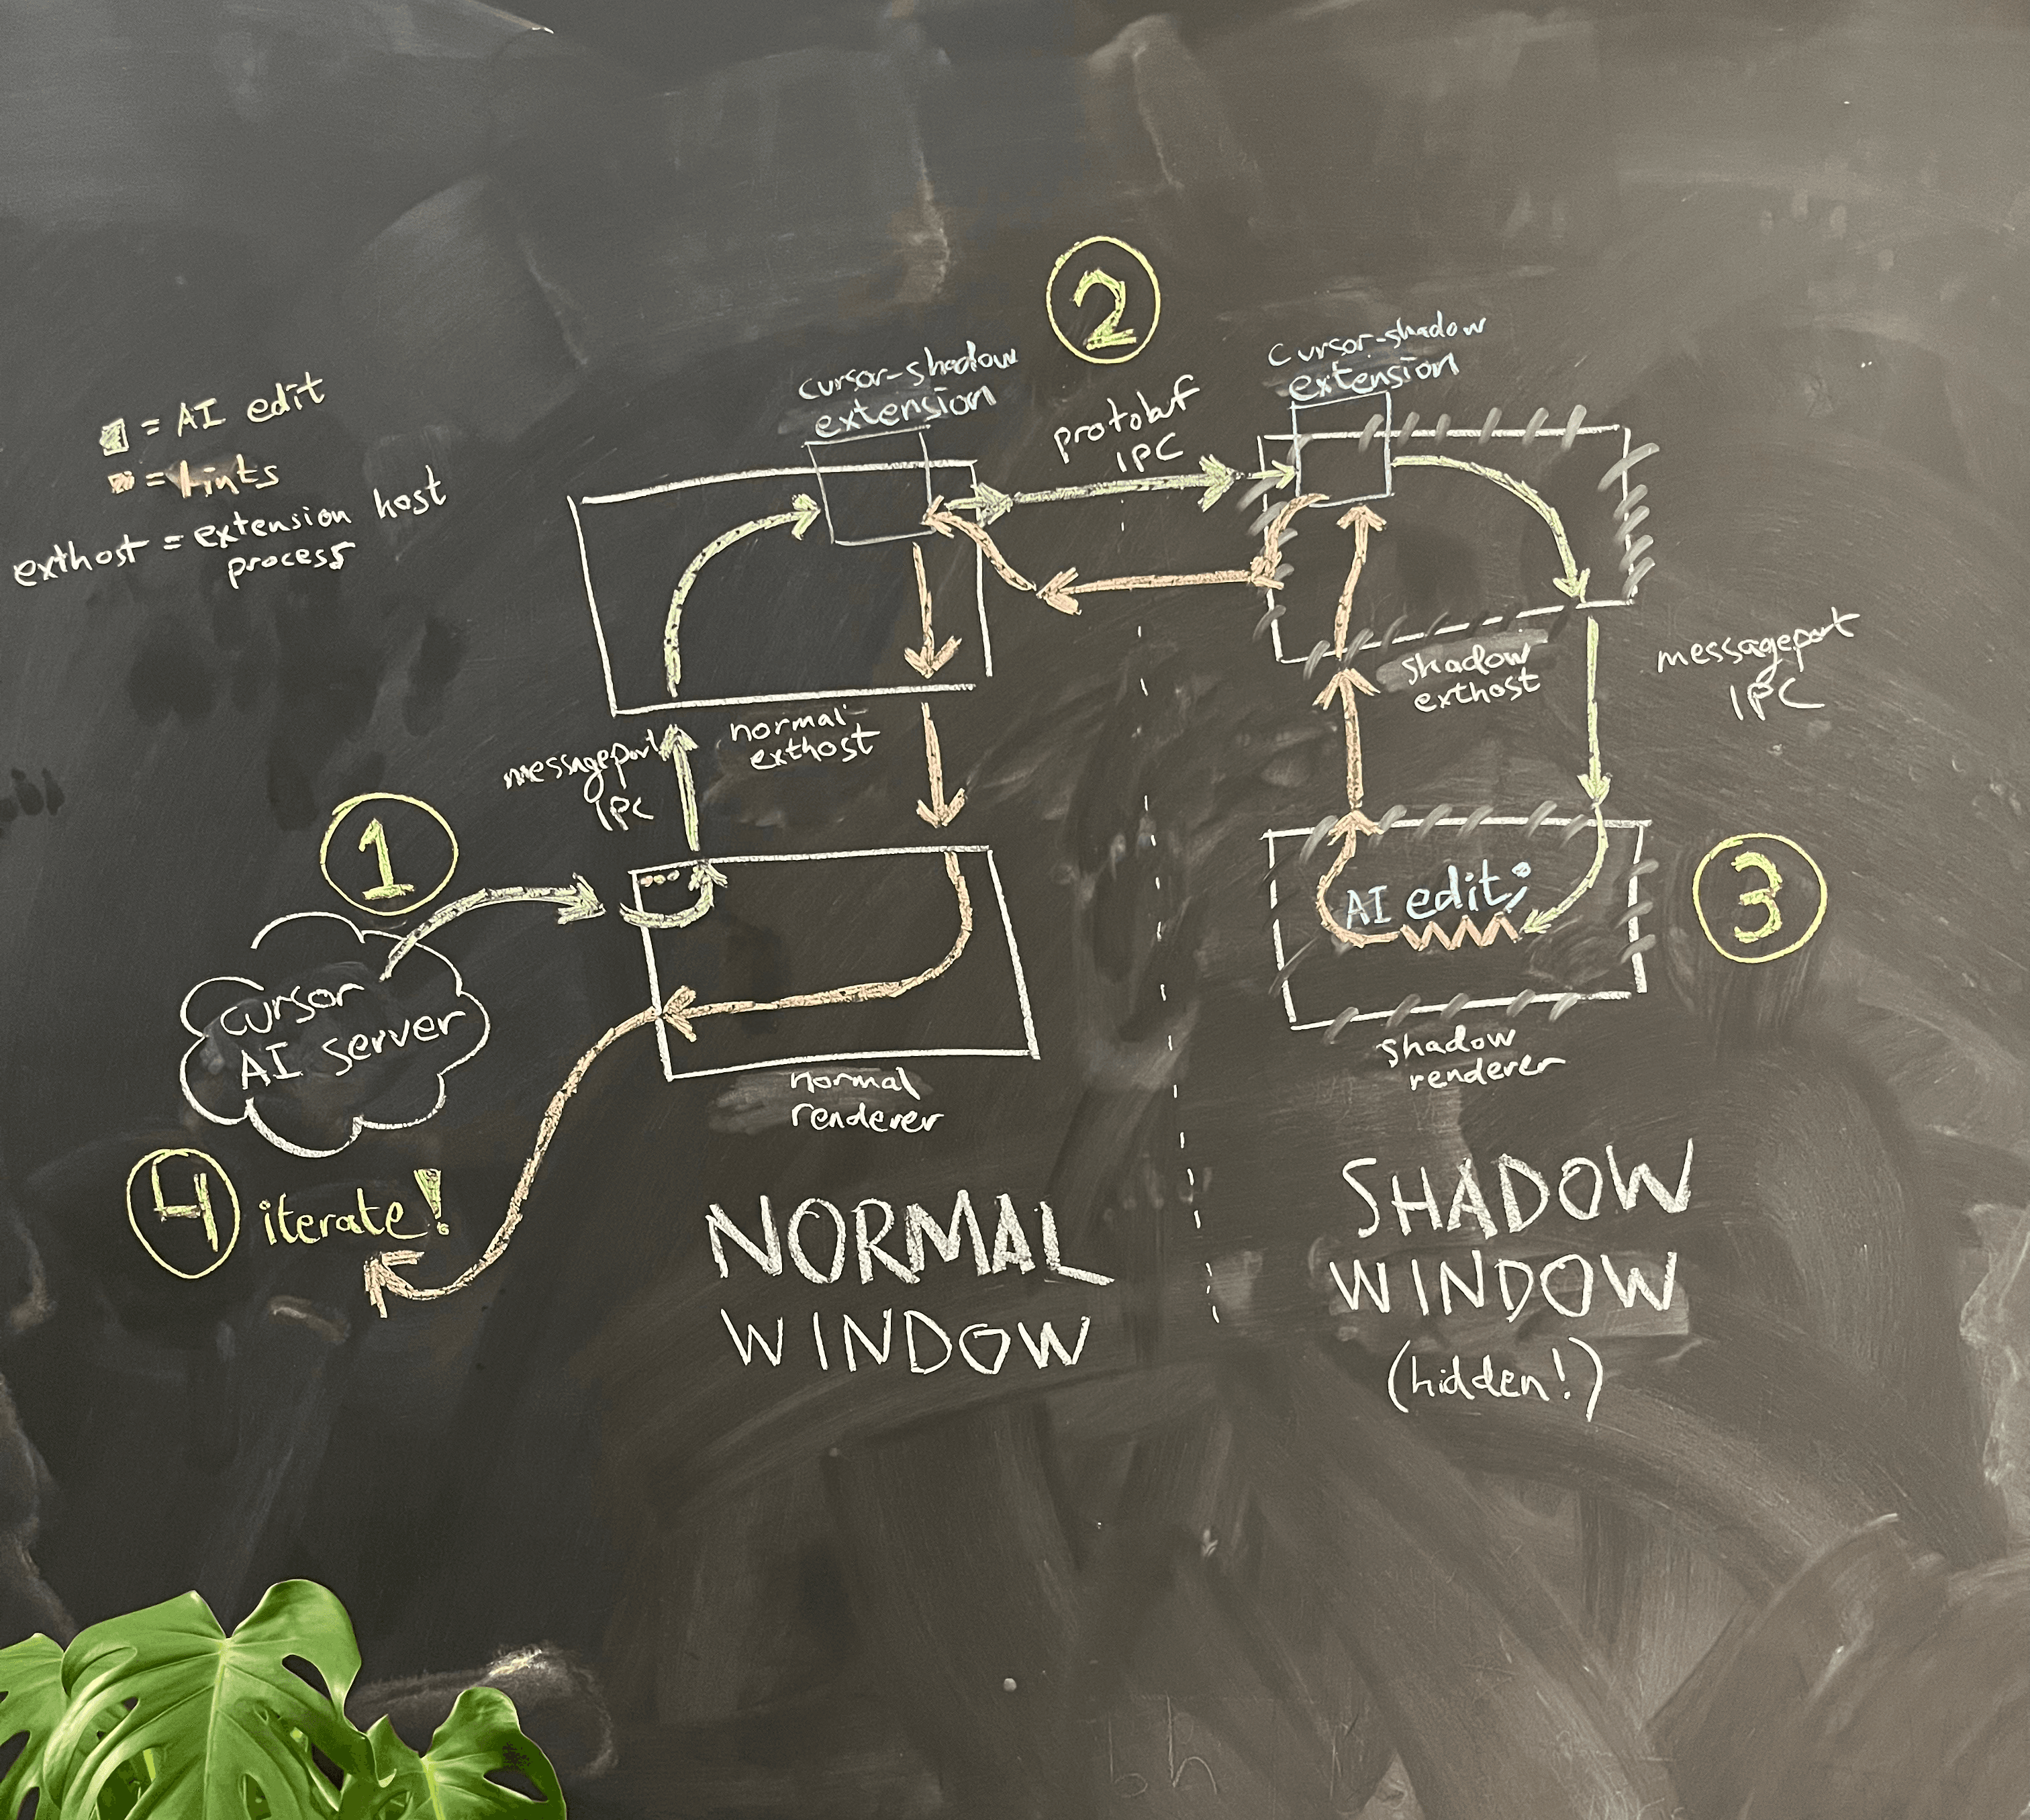 2
cursor-shadow
extension
cursor-shadow
extension
protobuf
IPC
= AI edit
= lints
exthost = extension host
process
messageport
IPC
normal
exthost
shadow
exthost
messageport
IPC
1
cursor
AI server
normal
renderer
AI edit;
3
shadow
renderer
4 iterate!
NORMAL
WINDOW
SHADOW
WINDOW
(hidden!)